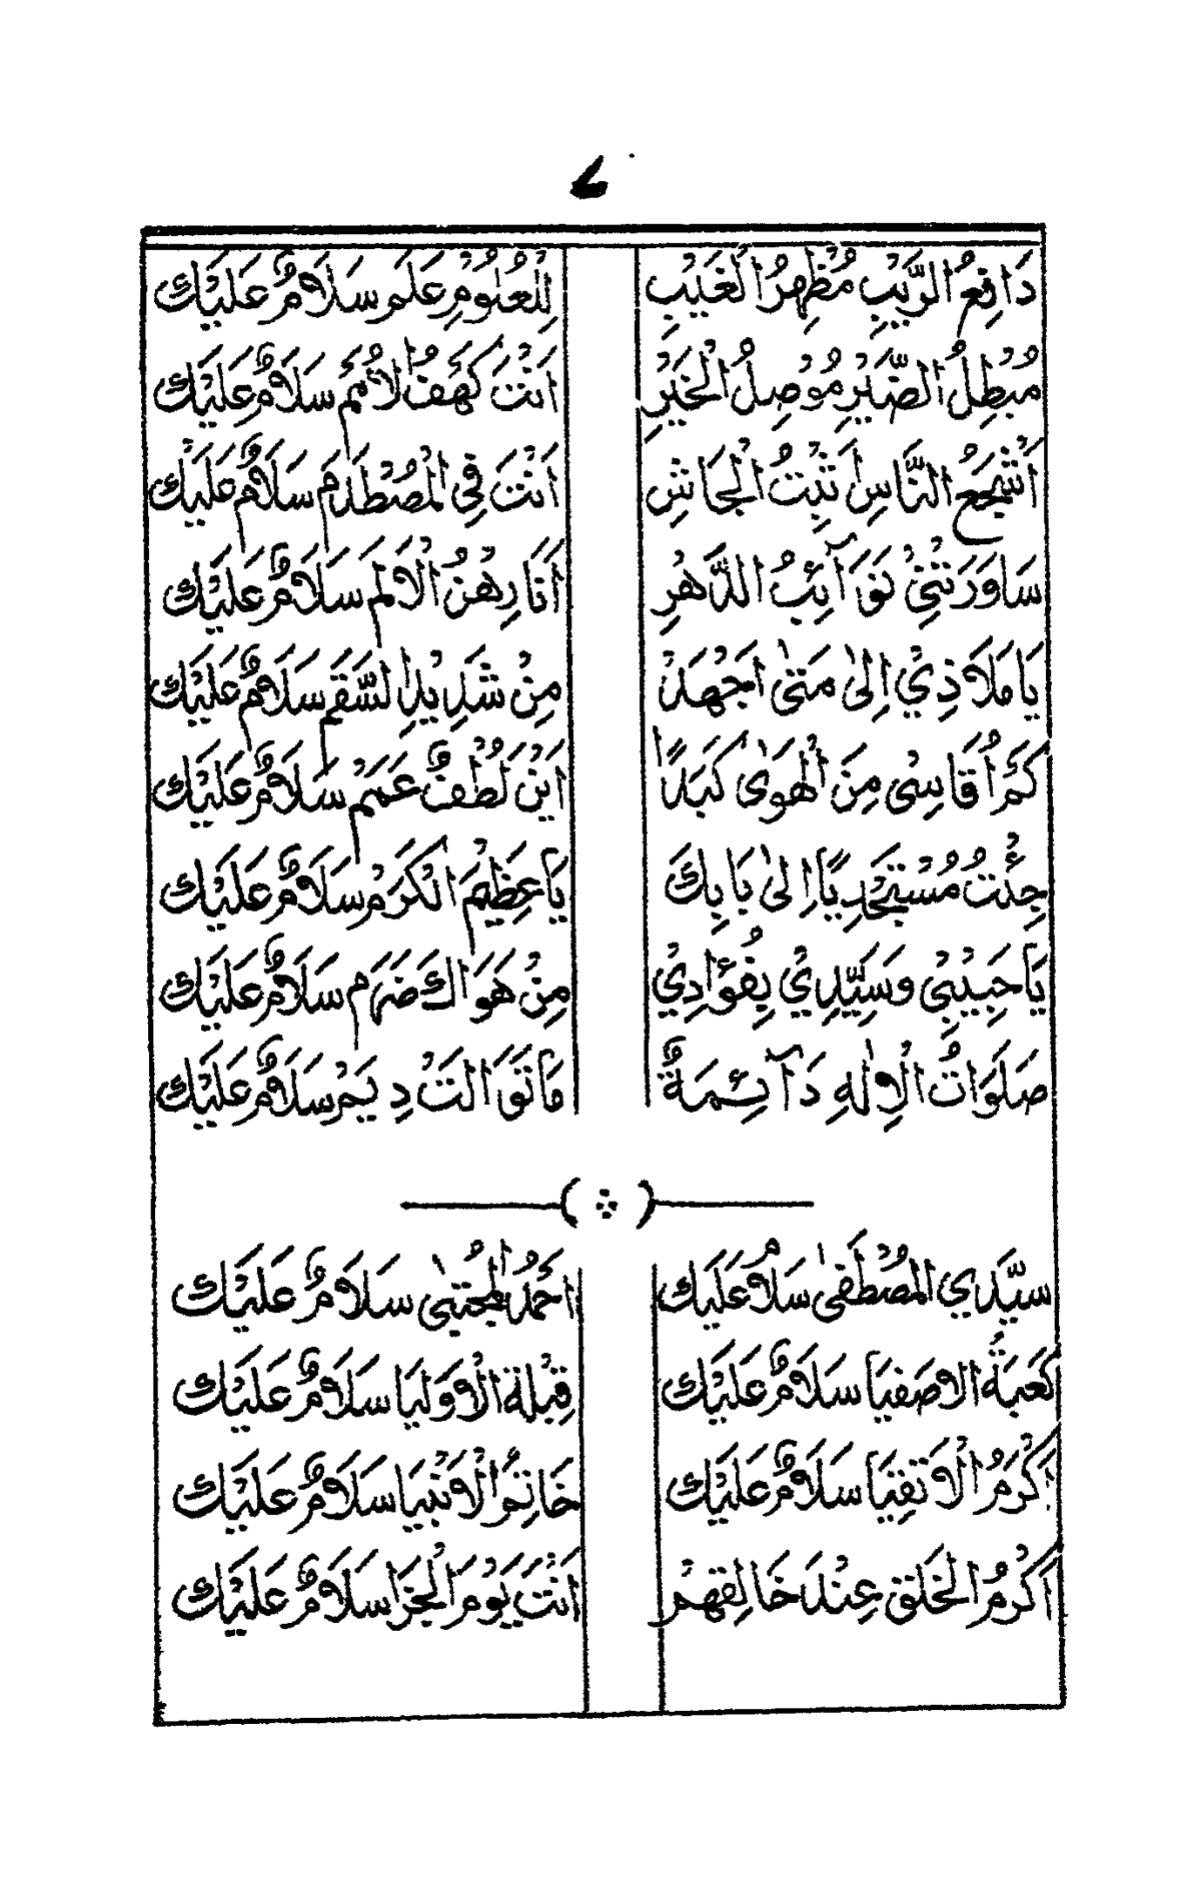 دَافِعُ الرَّيْبِ مُظْهِرُ الْغَيْبِ لِلْعُلُوْمِ عَلَم سَلَامٌ عَلَيْكَ
مُبْطِلُ الضَّيْرِ مُوْصِلُ الْخَيْرِ اَنْتَ كَهْفُ الْاُمَم سَلَامٌ عَلَيْكَ
اَشْجَعُ النَّاسِ ثَبْتُ الْجَاشِ اَنْتَ فِي الْمُصْطَدَم سَلَامٌ عَلَيْكَ
سَاوَرَتْنِيْ نَوَآئِبُ الدَّهْرِ اَنَا رِهْنُ الْاَلَم سَلَامٌ عَلَيْكَ
يَا مَلَاذِيْ اِلىٰ مَتىٰ اَجْهَدُ مِنْ شَدِيْدِ السَّقَم سَلَامٌ عَلَيْكَ
كَمْ اُقَاسِيْ مِنَ الْهَوٰى كَبَدًا اَيْنَ لُطْفٌ عَمَم سَلَامٌ عَلَيْكَ
جِئْتُ مُسْتَجْدِيًا اِلىٰ بَابِكَ يَا عَظِيْمَ الْكَرَمْ سَلَامٌ عَلَيْكَ
يَا حَبِيْبِيْ وَسَيِّدِيْ بِفُؤَادِيْ مِنْ هَوَاكَ ضَرَم سَلَامٌ عَلَيْكَ
صَلَوَاتُ الْاِلٰهِ دَآئِمَةٌ مَا تَوَالَتْ دِيَمْ سَلَامٌ عَلَيْكَ
سَيِّدِي الْمُصْطَفىٰ سَلَامٌ عَلَيْكَ اَحْمَدُ الْمُجْتَبىٰ سَلَامٌ عَلَيْكَ
كَعْبَةُ الْاَصْفِيَا سَلَامٌ عَلَيْكَ قِبْلَةُ الْاَوْلِيَا سَلَامٌ عَلَيْكَ
اَكْرَمُ الْاَتْقِيَا سَلَامٌ عَلَيْكَ خَاتِمُ الْاَنْبِيَا سَلَامٌ عَلَيْكَ
اَكْرَمُ الْخَلْقِ عِنْدَ خَالِقِهِمْ اَنْتَ يَوْمَ الْجَزَا سَلَامٌ عَلَيْكَ